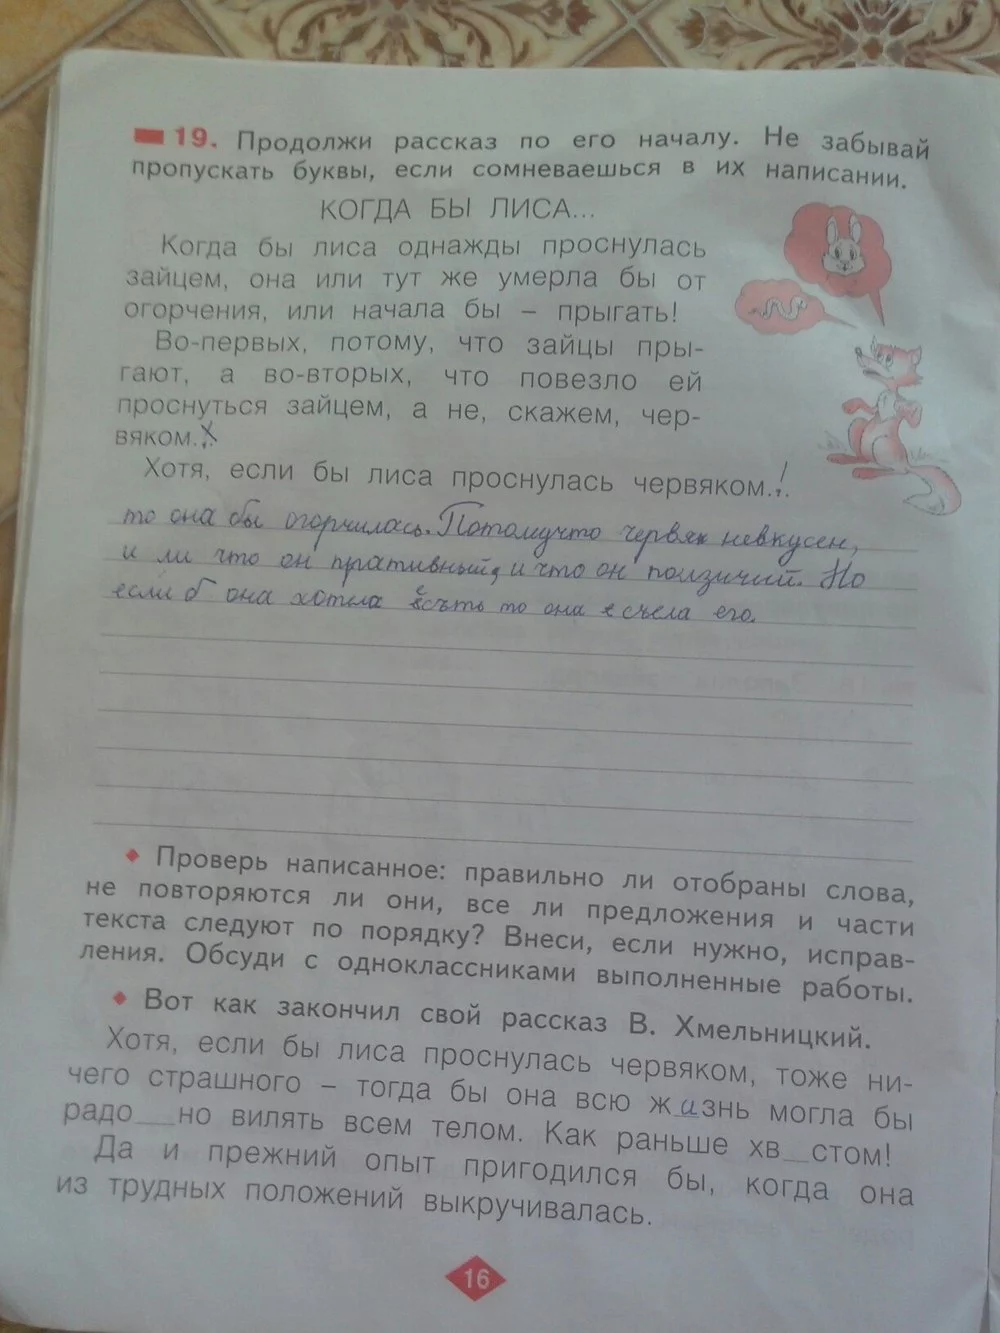 19. Продолжи рассказ по его началу. Не забывай
пропускать буквы, если сомневаешься в их написании.
КОГДА БЫ ЛИСА...
Когда бы лиса однажды проснулась
зайцем, она или тут же умерла бы от
огорчения, или начала бы – прыгать!
Во-первых, потому, что зайцы пры-
гают, а во-вторых, что повезло ей
проснуться зайцем, а не, скажем, чер-
вяком...
Хотя, если бы лиса проснулась червяком...
то она бы огорчилась. Потомучто червяк невкусен,
и ли что он пративный, и что он ползичий. Но
если б она хотела есть то она съела его.
Проверь написанное: правильно ли отобраны слова,
не повторяются ли они, все ли предложения и части
текста следуют по порядку? Внеси, если нужно, исправ-
ления. Обсуди с одноклассниками выполненные работы.
Вот как закончил свой рассказ В. Хмельницкий.
Хотя, если бы лиса проснулась червяком, тоже ни-
чего страшного – тогда бы она всю жизнь могла бы
радо__но вилять всем телом. Как раньше хв__стом!
Да и прежний опыт пригодился бы, когда она
из трудных положений выкручивалась.
16